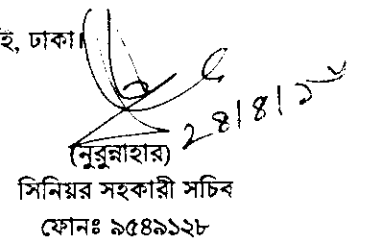 ঢাকা।
(নুরুন্নাহার)
সিনিয়র সহকারী সচিব
ফোনঃ ৯৫৪৯১২৮